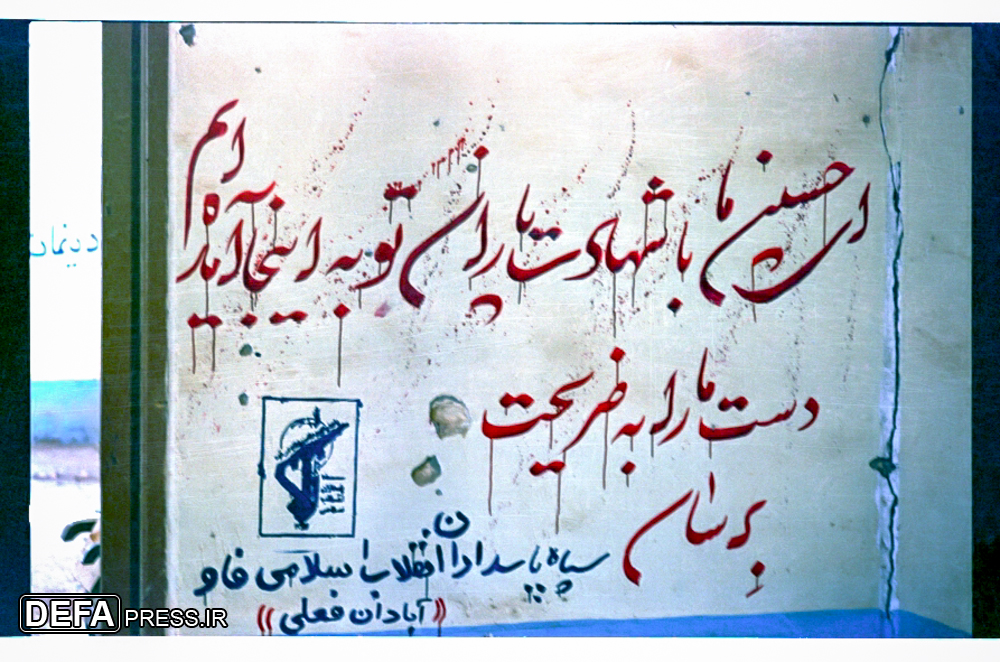 ای حسین ما با شهادت یاران تو به اینجا آمده ایم
دست ما را به ضریحت
برسان
سپاه پاسداران انقلاب اسلامی فاو
((آبادان فعلی))
DEFAPRESS.IR